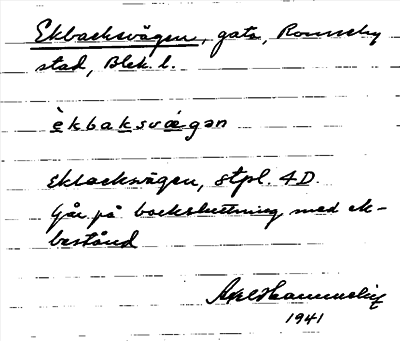 Ekbacksvägen, gata, Ronneby
stad, Blek. l.
èkbaksvǽgən
Ekbacksvägen, stpl. 4D.
Går på backsluttning med ek-
bestånd
Axel Hammerlöf
1941